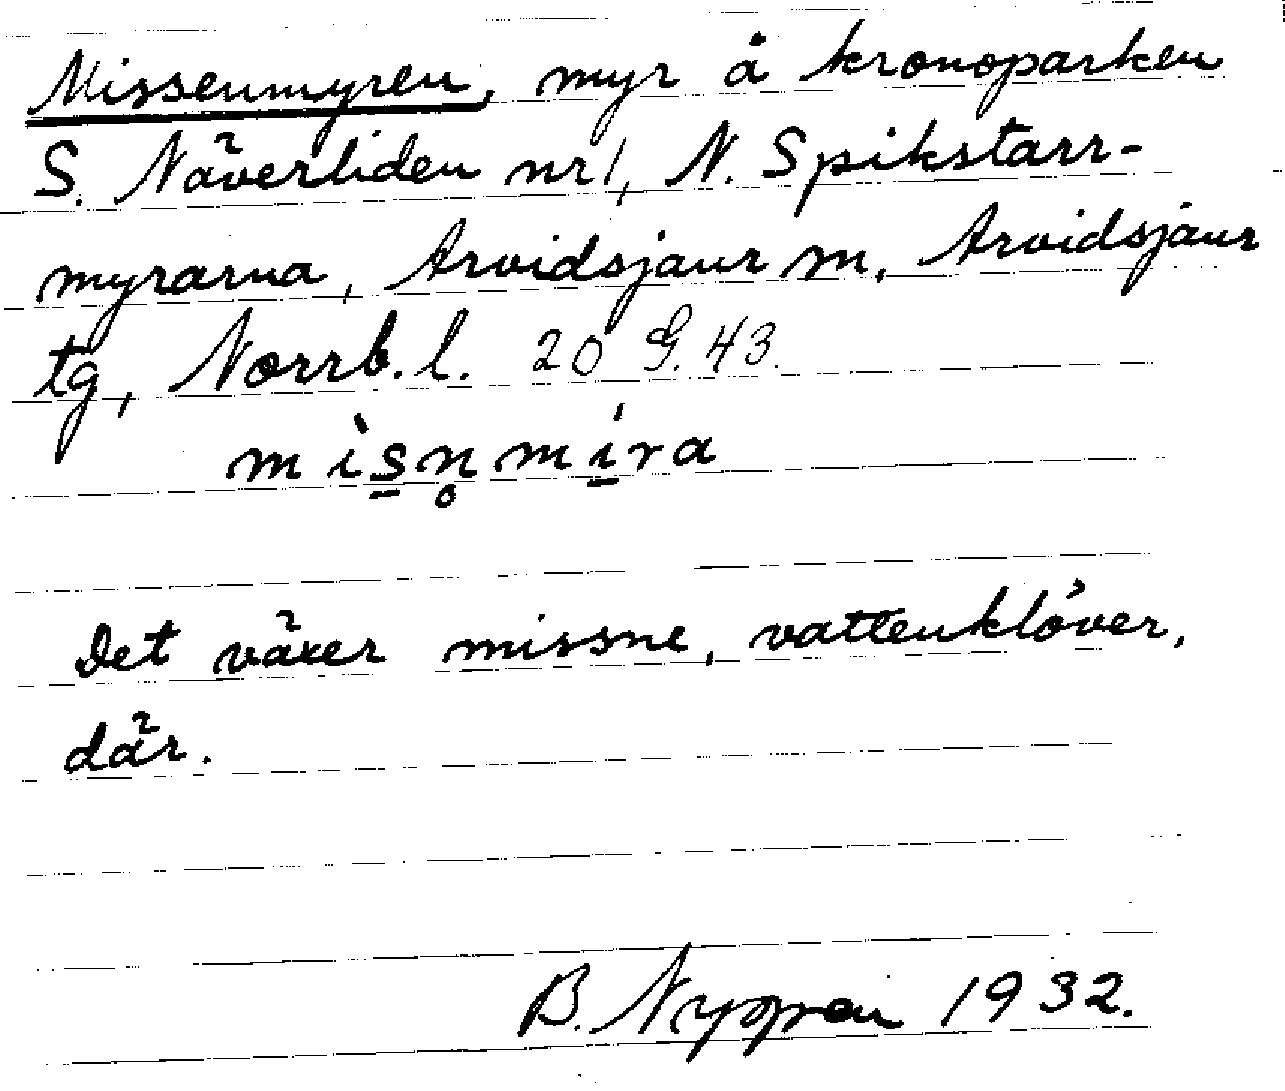 Missenmyren, myr å kronoparken
S. Näverliden nr 1, N. Spikstarr-
myrarna, Arvidsjaur m, Arvidsjaur
tg, Norrb. l. 20 G. 43.
mìs̠n̥mi̠ra
Det växer missne, vattenklöver,
där.
B. 1932.